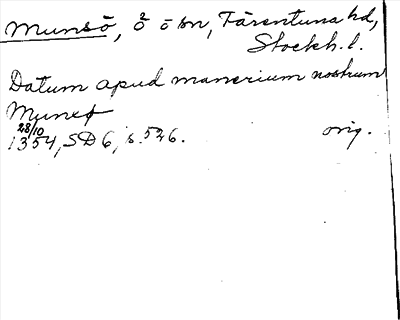 Munsö, ö o sn, Färentuna hd,
Stockh. l.
Datum apud manerium nostrum
Munsø
28/10
1354, SD 6, s. 526. orig.